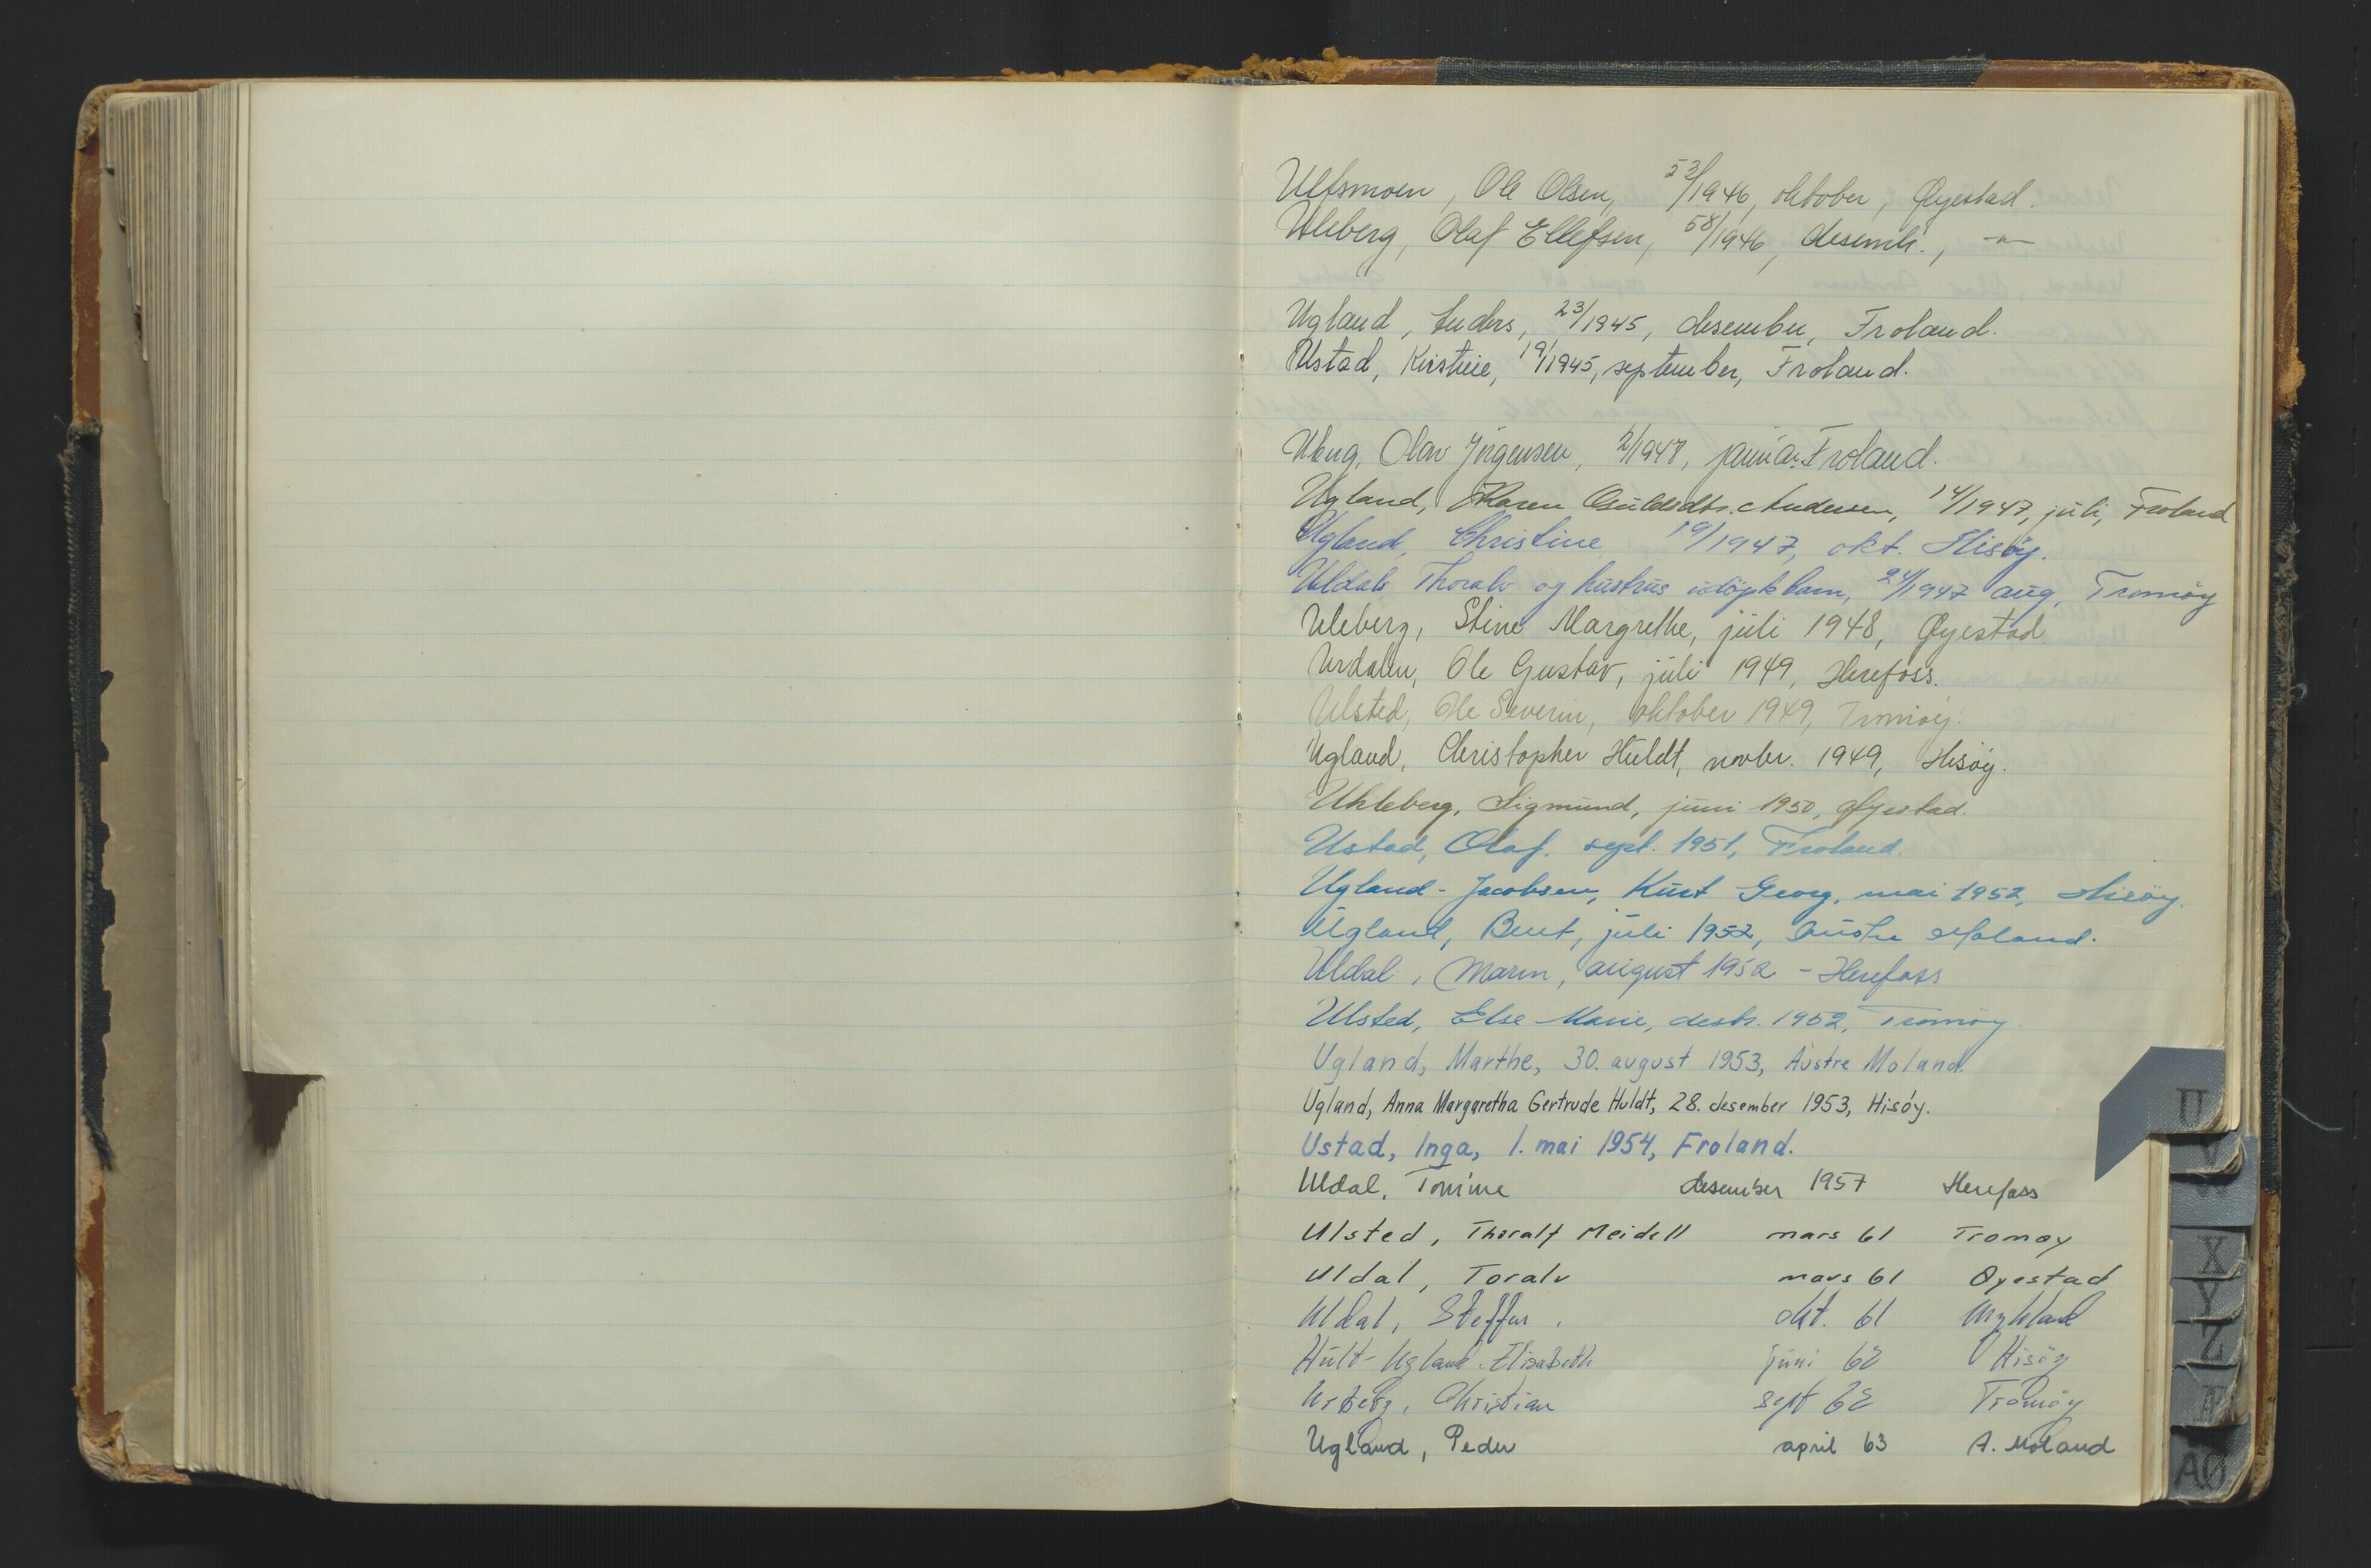 Ulfsmoen, Ole Olsen, 53/1946, oktober, Øyestad.
Uleberg, Olaf Ellefsen, 58/1946, desembr., -"-
Ugland, Anders, 23/1945, desember, Froland.
Ustad, Kirstine, 19/1945, september, Froland.
Olav Jörgensen, 2/1947, januar. Froland.
Ugland, Maren Andersen, 14/1947, juli, Froland
Ugland, Christine 19/1947, okt. Hisöy.
Uldals Thoralv og hustrus udöpt barn, 24/1947 aug, Tromöy
Uleberg, Stine Margrethe, juli 1948, Øyestad.
Urdalen, Ole Gustav, juli 1949, Herefoss.
Ulsted, Ole Severin, oktober 1949, Tromöy.
Ugland, Christopher Huldt, novbr. 1949, Hisöy.
Uhleberg, Sigmund, juni 1950, Øyestad.
Ustad, Olaf. sept. 1951, Froland.
Ugland-Jacobsen, Kurt Georg, mai 1952, Hisöy.
Ugland, Bent, juli 1952, Austre Moland.
Uldal, Maren, august 1952 - Herefoss
Ulsted, Else Marie, desbr. 1952, Tromöy.
Ugland, Marthe, 30. august 1953, Austre Moland.
Ugland, Anna Margaretha Gertrude Huldt, 28. desember 1953, Hisöy.
Ustad, Inga, 1. mai 1954, Froland.
Uldal, Tomine desember 1957 Herefoss
Ulsted, Thoralf Meidell mars 61 Tromøy
Uldal, Toralv mars 61 Øyestad
Uldal, Steffen. okt. 61 Mykland
Hult-Ugland. Elisabeth juni 62 Hisöy
Urberg, Christian sept 62 Tromöy
Ugland, Peder april 63 A. Moland
U
V
X
Y
Z
Æ
AØ